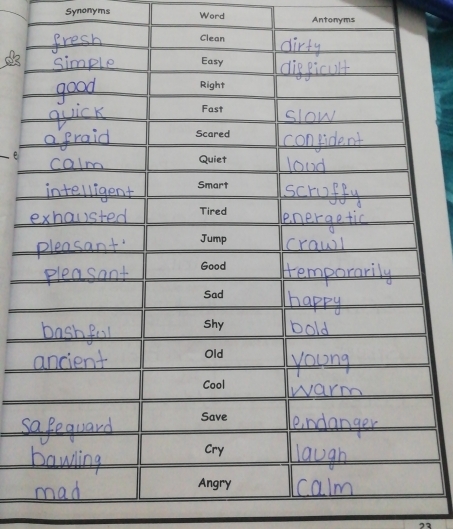 Synonyms Word Antonyms
fresh Clean dirty
simple Easy difficult
good Right
quick Fast slow
afraid Scared confident
calm Quiet loud
intelligent Smart scruffy
exhausted Tired energetic
pleasant Jump crawl
pleasant Good temporarily
Sad happy
bashful Shy bold
ancient Old young
Cool warm
safeguard Save endanger
bawling Cry laugh
mad Angry calm
23